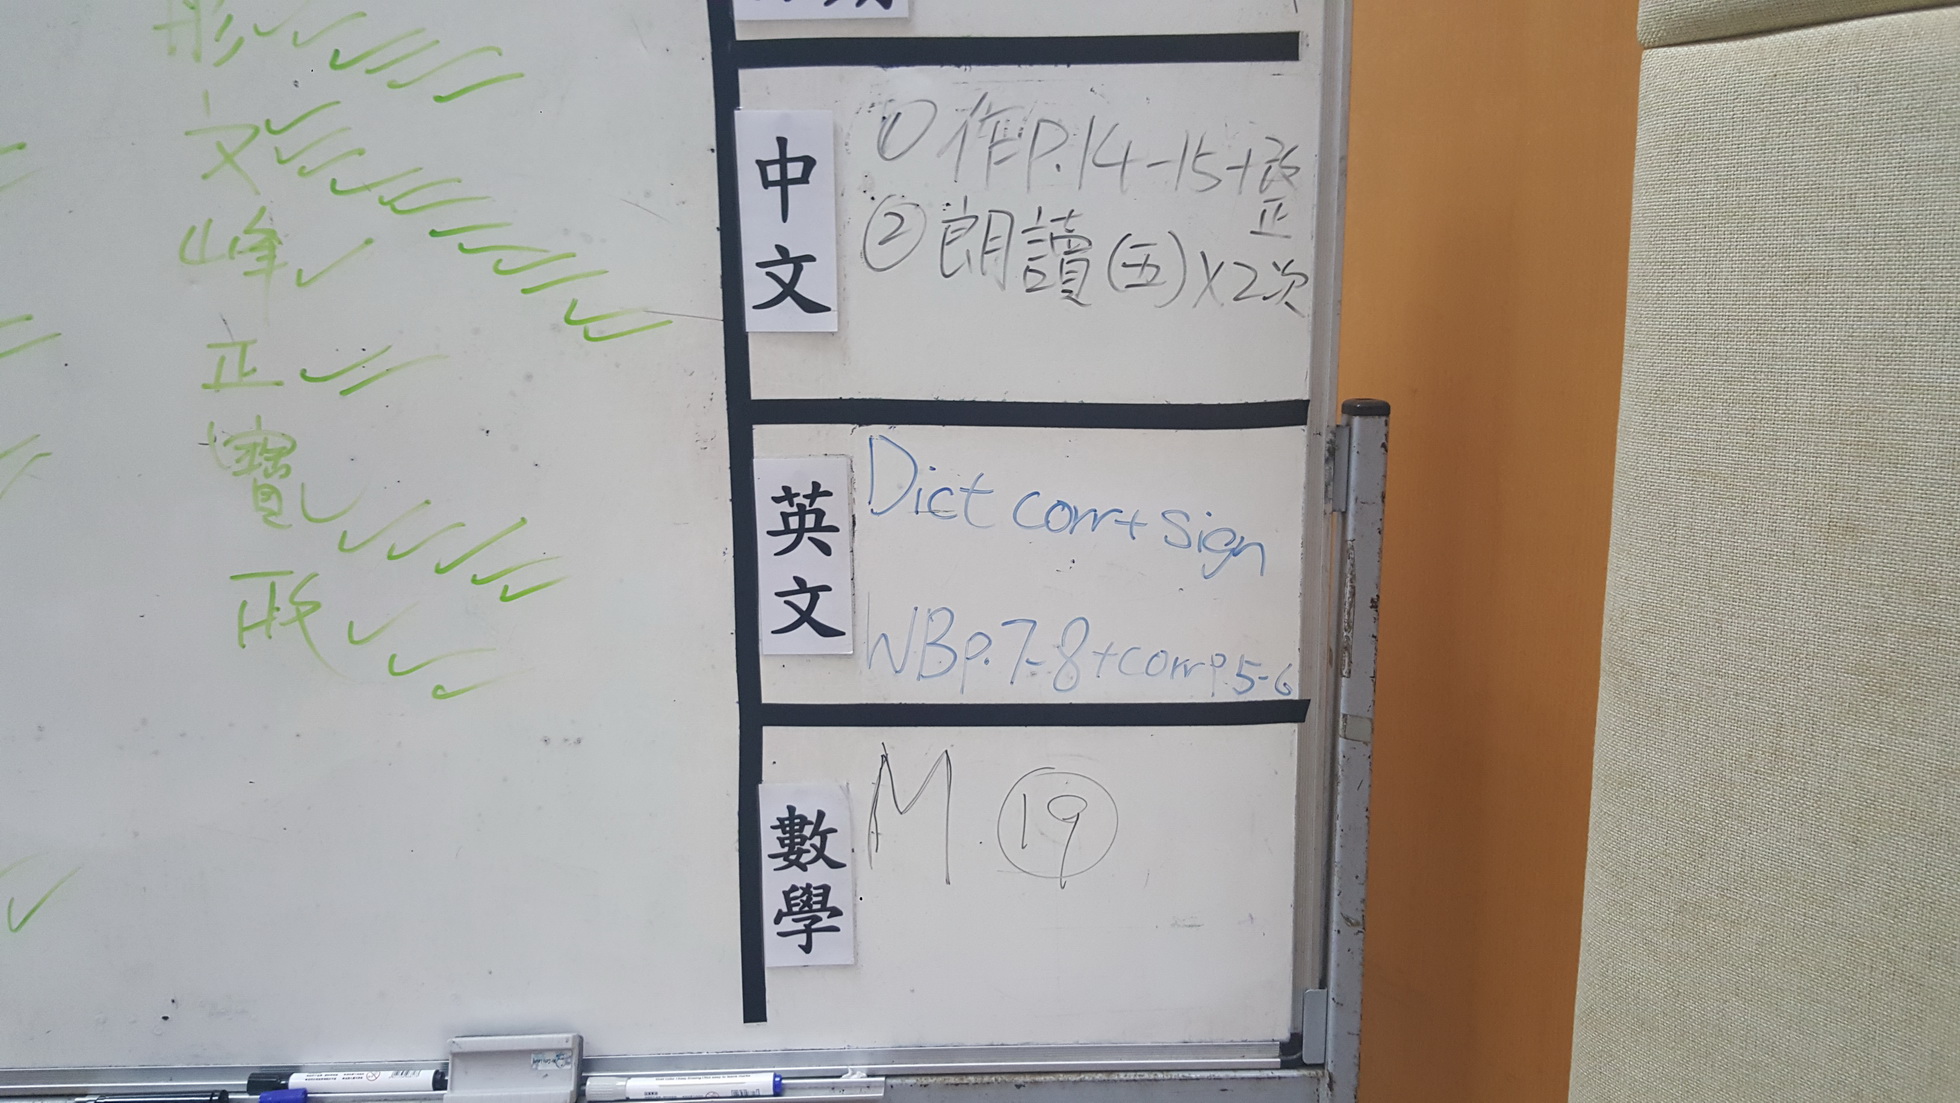 彤
文
峰
正
寶
中文
① 作P.14-15+改正
② 朗讀(五)×2次
英文
Dict corr+sign
WBp.7-8+corrp.5-6
數學
M ⑲